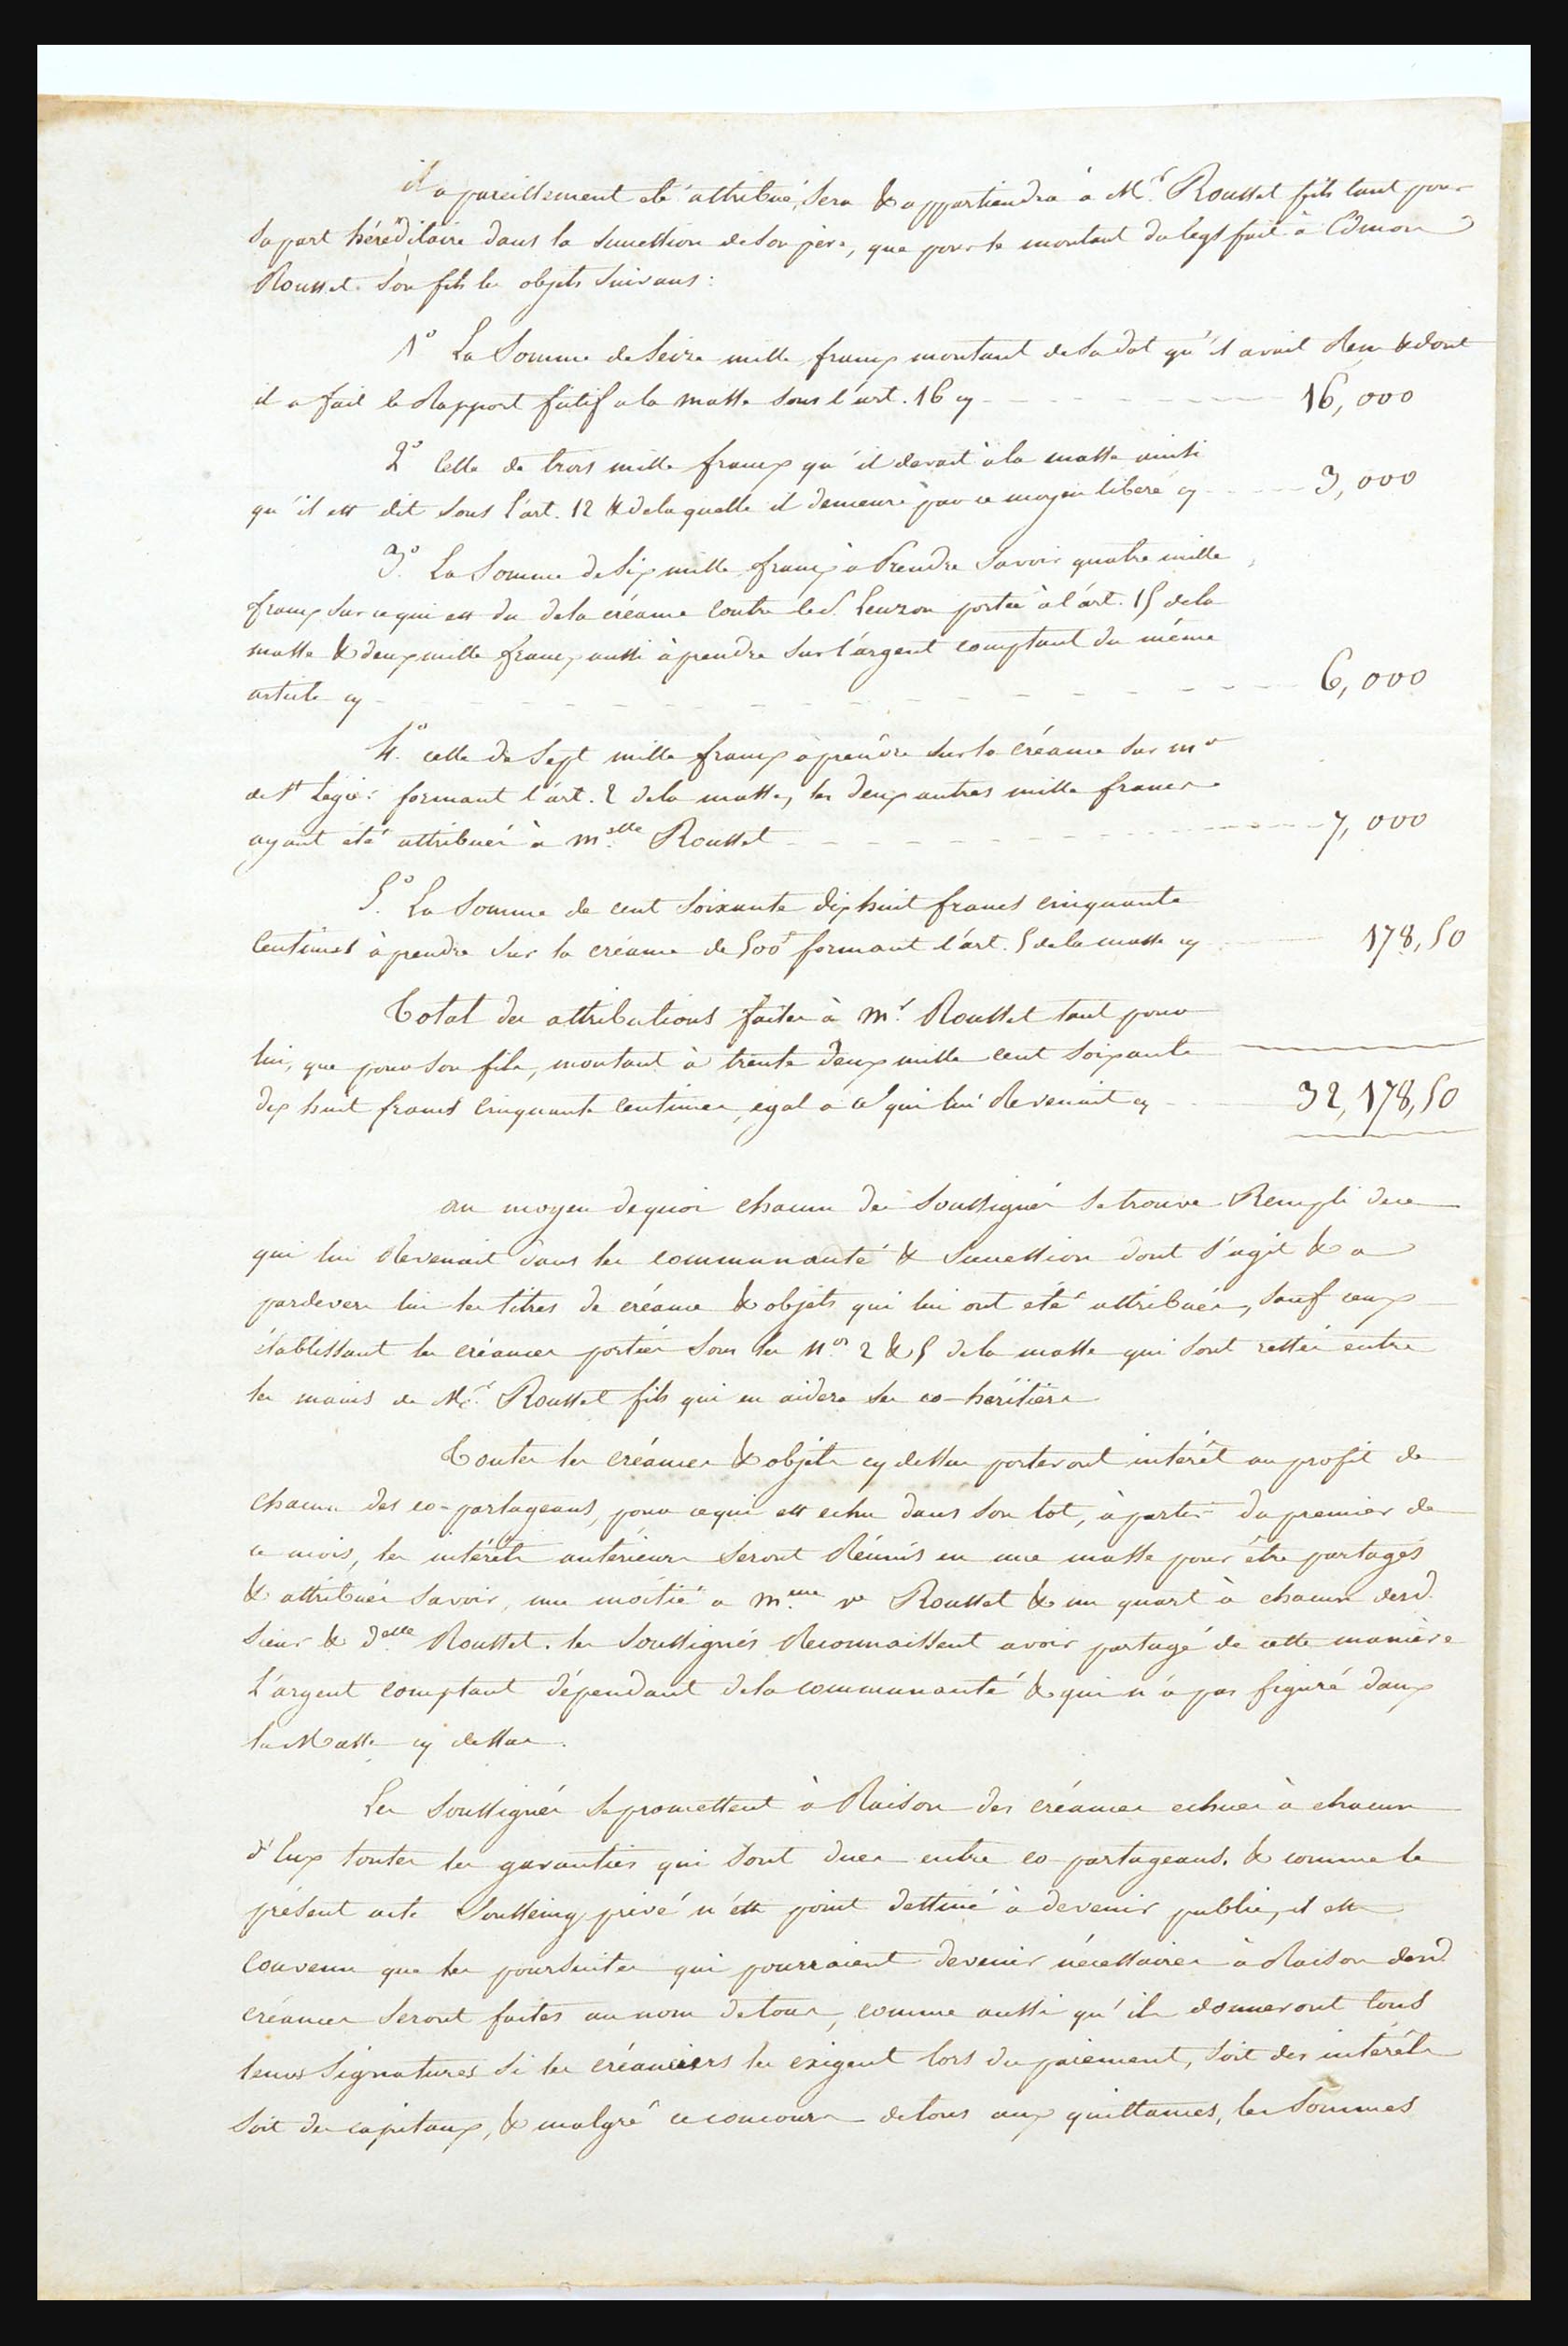 il a pareillement été attribué, sera & appartiendra à Mr. Rousset fils tant pour
sa part héréditaire dans la succession de son père, que pour le montant du legs fait à Edmon
Rousset son fils les objets suivans:
1o La Somme de seize mille francs montant de sa dot qu'il avait Reçu & dont
il a fait le Rapport fictif a la masse sous l'art. 16 cy 16,000
2o Celle de trois mille francs qu'il devait à la masse ainsi
qu'il est dit sous l'art. 12 & de laquelle il demeure par ce moyen liberé cy 3,000
3o. La Somme de six mille francs a Prendre savoir quatre mille
francs sur ce qui est du de la créance contre le S. Leuzon portée à l'art. 15 de la
masse & deux mille francs aussi à prendre sur l'argent comptant du même
article cy 6,000
4o. celle de Sept mille francs à prendre sur la créance sur mr
de St Legier formant l'art. 2 de la masse, les deux autres mille francs
ayant été attribués à melle Rousset 7,000
5o. La Somme de cent soixante dix huit francs cinquante
Centimes à prendre sur la créance de 500f formant l'art. 5 de la masse cy 178,50
Total des attributions faites à mr. Rousset tant pour
lui, que pour son fils, montant à trente deux mille cent soixante
dix huit francs cinquante centimes, egal a ce qui lui Revenait cy 32,178,50
au moyen de quoi chacun des soussignés se trouve Rempli de ce
qui lui Revenait dans les communauté & succession dont s'agit & a
pardevers lui les titres de créance & objets qui lui ont été attribués, sauf ceux
établissant les créances portées sous les Nos. 2 & 5 de la masse qui sont restés entre
les mains de Mr. Rousset fils qui en aidera ses co-heritiers
Toutes les créances & objets cy dessus porteront intérêt au profit de
chacun des co-partageans, pour ce qui est echu dans son lot, à partir du premier de
ce mois, les intérêts antérieurs seront Réunis en une masse pour être partagés
& attribués savoir, une moitié a mme ve Rousset & un quart à chacun desd.
sieur & delle Rousset. les soussignés Reconnaissent avoir partagé de cette manière
L'argent comptant dépendant de la communauté & qui n'a pas figuré dans
la Masse cy dessus.
Les soussignés se promettent à Raison des créances echues à chacun
d'Eux toutes les garanties qui sont dues entre co-partageans. & comme le
présent acte sousseing privé n'est point destiné à devenir public, il est
convenu que les poursuites qui pourraient devenir nécessaires à Raison desd.
créances seront faites au nom de tous, comme aussi qu'ils donneront tous
leurs Signatures si les créanciers les exigent lors du paiement, soit des intérêts
soit des capitaux, & malgré ce concours de tous aux quittances, les Sommes